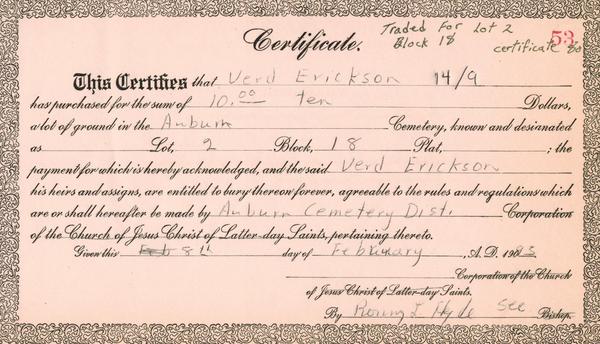 Traded For Lot 2
Block 18
certificate 80
53
Certificate.
This Certifies that Verd Erickson 14/9
has purchased for the sum of 10.00 ten Dollars,
a lot of ground in the Auburn Cemetery, known and designated
as Lot, 2 Block, 18 Plat, ; the
payment for which is hereby acknowledged, and the said Verd Erickson
his heirs and assigns, are entitled to bury thereon forever, agreeable to the rules and regulations which
are or shall hereafter be made by Auburn Cemetery Dist. Corporation
of the Church of Jesus Christ of Latter-day Saints, pertaining thereto.
Given this Feb 8th day of February, A.D. 1983
Corporation of the Church
of Jesus Christ of Latter-day Saints.
By Hyde See Bishop.